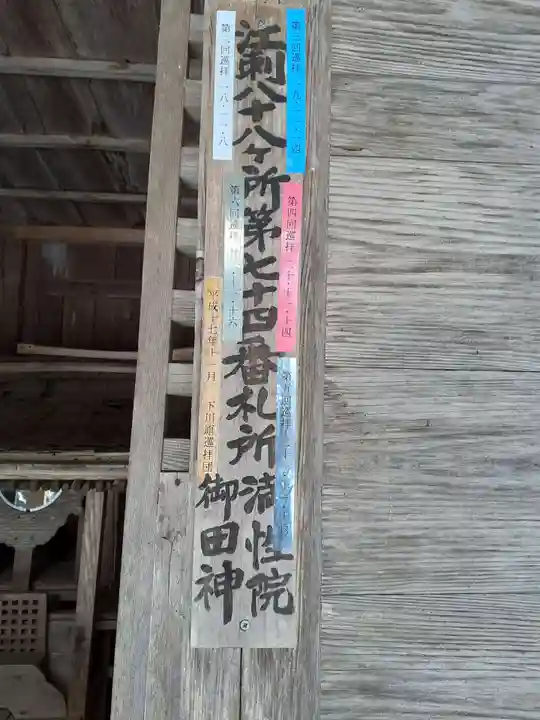 八十八ヶ所第七十四番札所
清性院
御田神
第三回巡拝 一九・一一・一四
第二回巡拝 一八・一一・八
第四回巡拝 二十・十一・十四
第六回巡拝
第五回巡拝
平成十七年十一月 下川原巡拝団